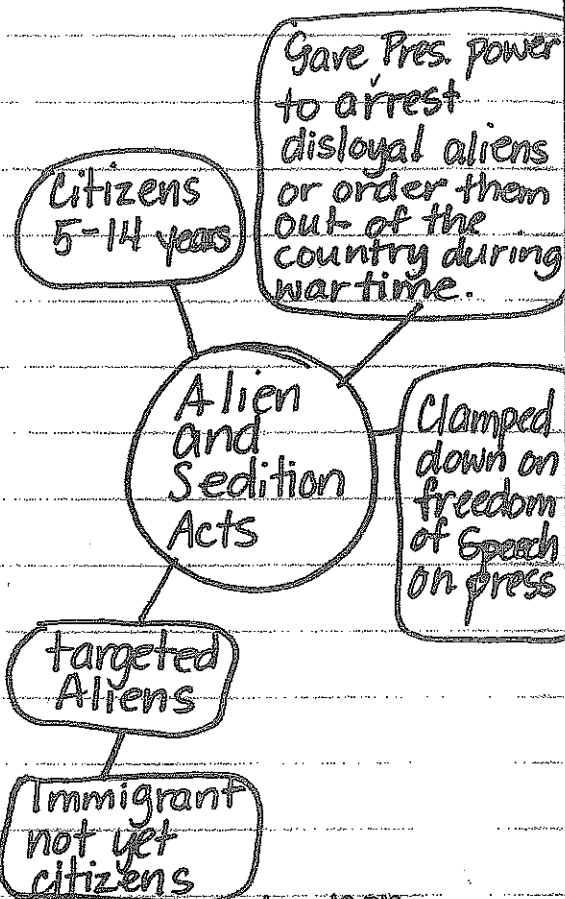 Gave Pres. power
to arrest
disloyal aliens
or order them
out of the
country during
wartime.
Citizens
5-14 years
Alien
and
Sedition
Acts
Clamped
down on
freedom
of Speech
on press
targeted
Aliens
Immigrant
not yet
citizens